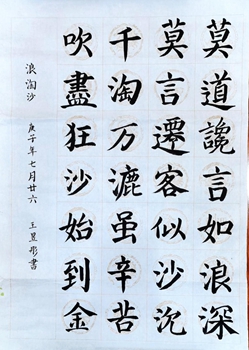 莫道讒言如浪深
莫言遷客似沙沉
千淘万漉虽辛苦
吹盡狂沙始到金
浪淘沙 庚子年七月廿六 王昱彤書